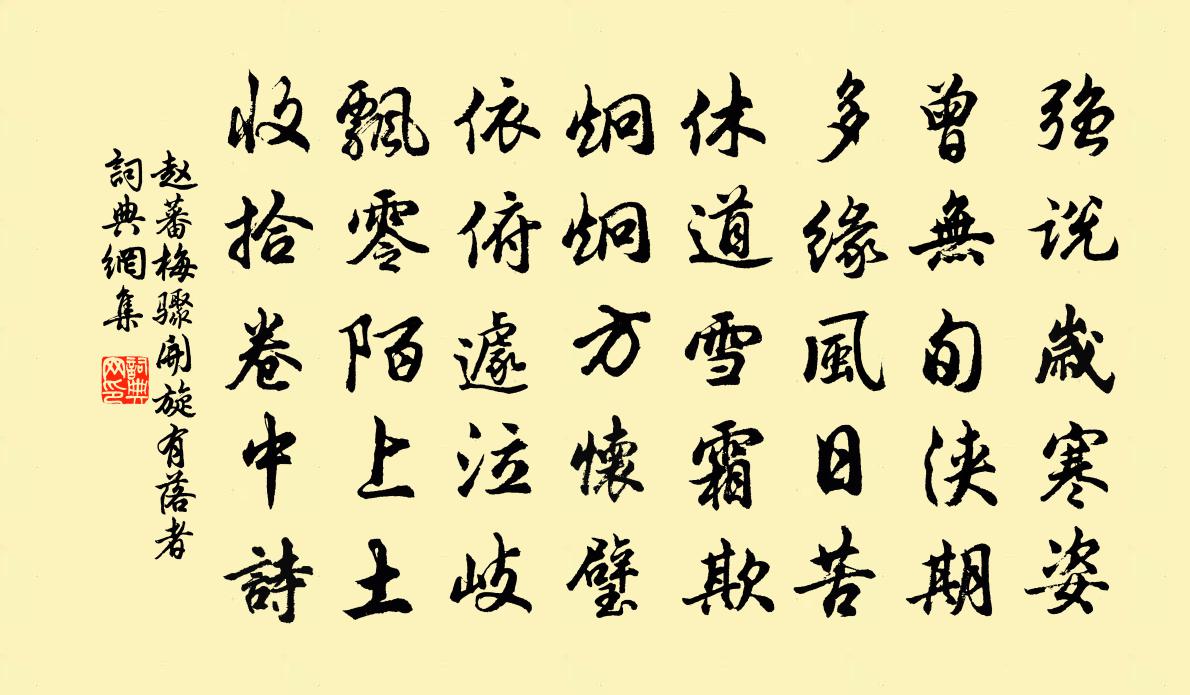 強说歲寒姿
曾無旬浹期
多緣風日苦
休道雪霜欺
炯炯方懷璧
依俯遽泣岐
飄零陌上土
收拾卷中詩
赵蕃梅骤開旋有落者
詞典網集
詞典网印